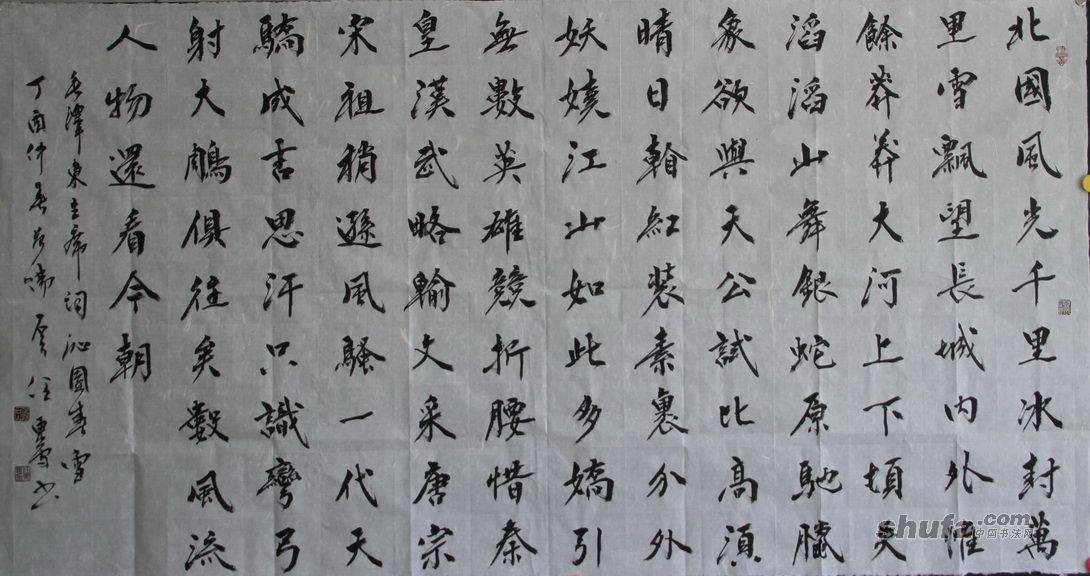 北國風光千里冰封萬
里雪飄望長城內外惟
餘莽莽大河上下頓失
滔滔山舞銀蛇原馳臘
象欲與天公試比高須
晴日紅裝素裹分外
妖嬈江山如此多嬌引
無數英雄競折腰惜秦
皇漢武略輸文采唐宗
宋祖稍遜風騷一代天
驕成吉思汗只識彎弓
射大鵰俱往矣數風流
人物還看今朝
毛澤東主席詞沁園春雪
丁酉仲春書
shufa.com
中国书法网